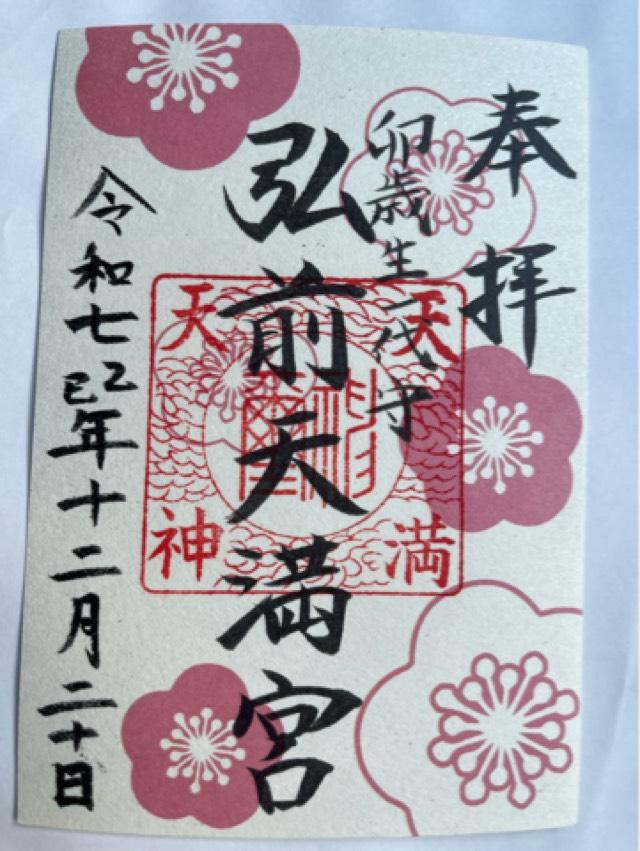 奉拝
卯歳生一代守
弘前天満宮
天満
天神
令和七乙巳年十二月二十日